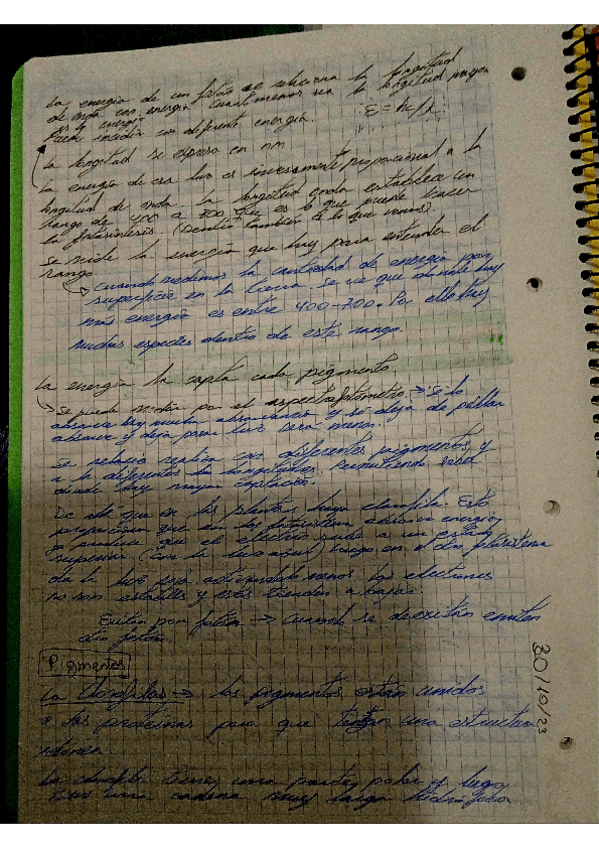 La energía de un fotón se relaciona la longitud
de onda con energía. Cuanto menor sea la longitud mayor
es la energía
Puede incidir con diferente energía. E = hc/λ
La longitud se expresa en nm
La energía de esa luz es inversamente proporcional a la
longitud de onda. La longitud onda establece un
rango de 400 a 700 que es lo que puede hacer
la fotosíntesis. (Dentro también de lo que vemos)
Se mide la energía que hay para entender el
rango
Cuando medimos la cantidad de energía por
superficie en la tierra. Se ve que donde hay
más energía es entre 400-700. Por ello hay
muchas especies dentro de este rango.
La energía la capta cada pigmento.
→ Se puede medir por el espectrofotómetro → Si lo
absorbe hay mucha absorbancia y si deja de
absorbe y deja pasar luz será menor.
Se relacio con diferentes pigmentos y
a diferentes longitudes. Permitiendo
donde hay mayor captación.
De ahí que en las plantas haya clorofila. Esto
que en los fotosistema absorba energía
y produce que el electrón suba a un estado
superior. (con la luz azul) luego en el dos fotosistema
da la luz roja menos. Los electrones
no son estables y estos tienden a bajar.
Excitan por fotón → Cuando se desexcitan emiten
otro fotón
Pigmentos
La Clorofilas → los pigmentos están unidos
a las proteínas para que tengan una estructura
30/10/23
La clorofila tiene una parte polar y luego
una cadena muy larga hidrófoba